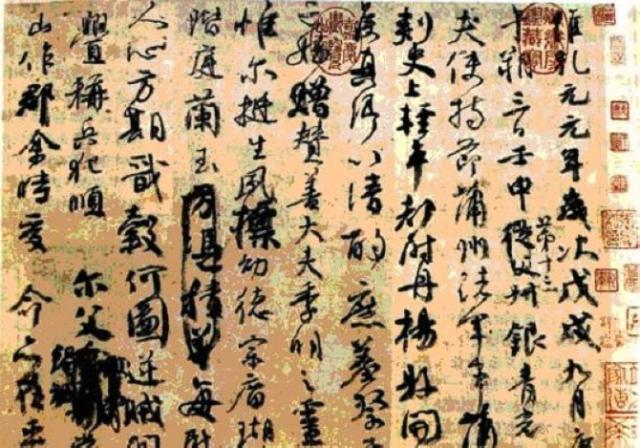 維乾元元年歲次戊戌九月庚
午朔三日壬申第十三從父叔銀青光
夫使持節蒲州諸軍事蒲
刺史上輕車都尉丹楊縣開
侯真卿以清酌庶羞祭
亡姪贈贊善大夫季明之靈
惟爾挺生夙標幼德宗廟瑚
階庭蘭玉方憑積善每慰
人心方期戩穀何圖逆賊間
釁稱兵犯順爾父
山作郡余時受命亦在平